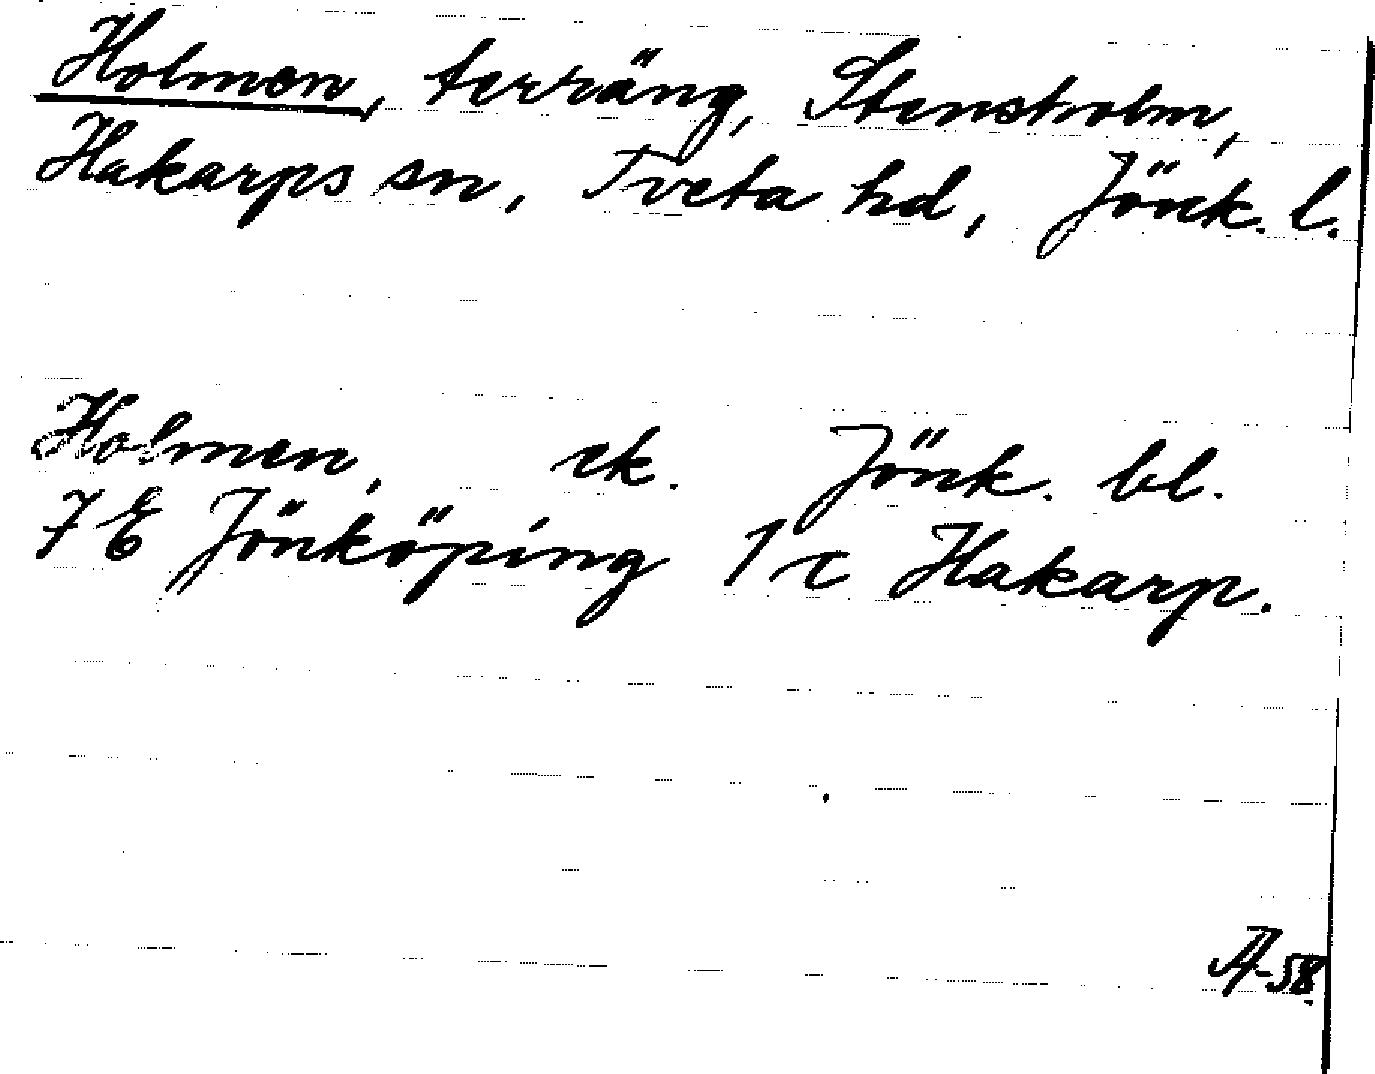 Holmen, terräng, Stensholm,
Hakarps sn, Tveta hd, Jönk. l.
Holmen, ek. Jönk. bl.
7 E Jönköping 1 c Hakarp.